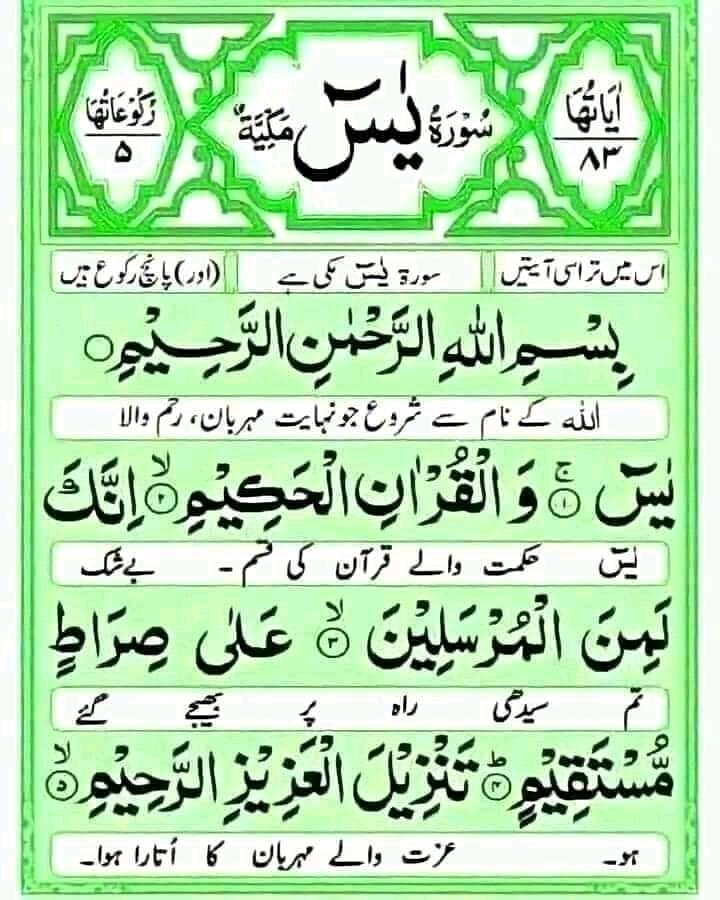 اٰیَاتُهَا ۸۳
سُوْرَةُ یٰسٓ مَكِّیَّةٌ
رُكُوْعَاتُهَا ۵
اس میں تراسی آیتیں
سورۃ یٰسٓ مکی ہے
(اور) پانچ رکوع ہیں
بِسْمِ اللهِ الرَّحْمٰنِ الرَّحِیْمِ
اللہ کے نام سے شروع جو نہایت مہربان، رحم والا
یٰسٓ ۚ﴿۱﴾ وَ الْقُرْاٰنِ الْحَكِیْمِ ۙ﴿۲﴾ اِنَّكَ
یٰسٓ حکمت والے قرآن کی قسم ۔ بےشک
لَمِنَ الْمُرْسَلِیْنَ ۙ﴿۳﴾ عَلٰی صِرَاطٍ
تم سیدھی راہ پر بھیجے گئے
مُّسْتَقِیْمٍ ؕ﴿۴﴾ تَنْزِیْلَ الْعَزِیْزِ الرَّحِیْمِ ۙ﴿۵﴾
ہو۔ عزت والے مہربان کا اُتارا ہوا۔